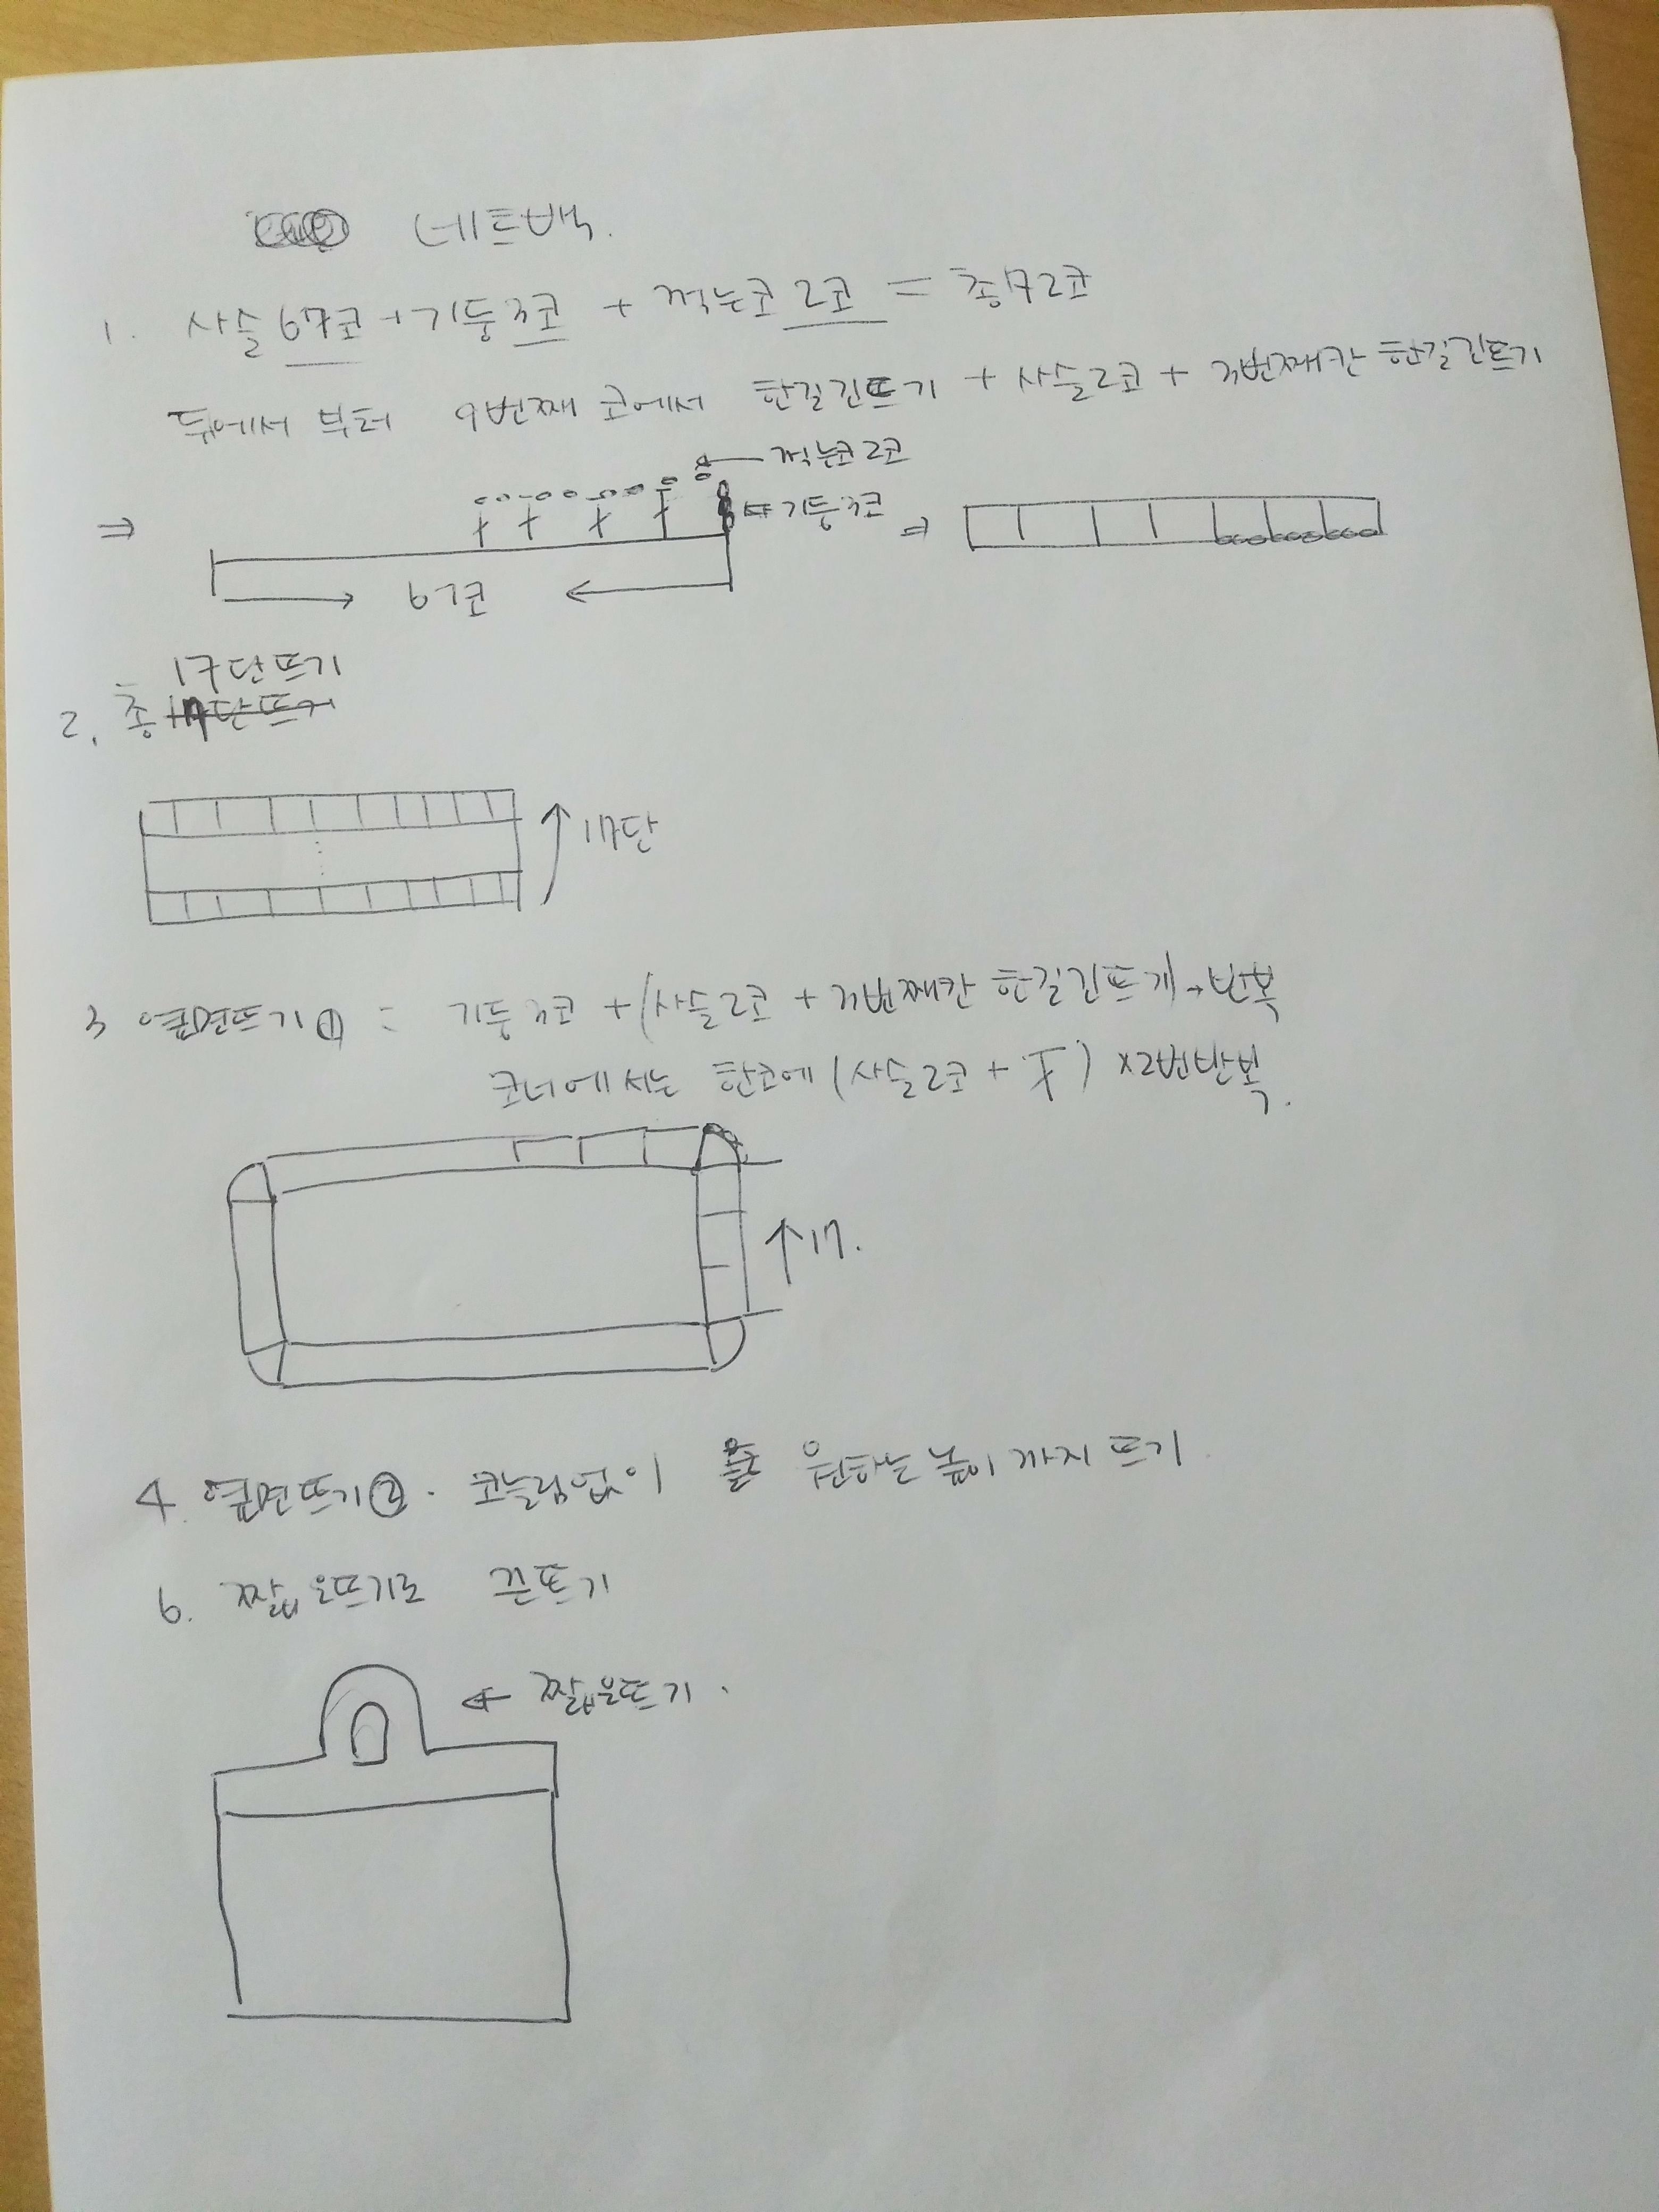 네트백.
1. 사슬 67코 + 기둥 3코 + 꺽는코 2코 = 총 72코
뒤에서 부터 9번째 코에서 한길긴뜨기 + 사슬2코 + 3번째칸 한길긴뜨기
← 꺽는코 2코
⇒ ← 기둥 3코 ⇒
67코
17단뜨기
2. 총 17단뜨기
17단
3 옆면뜨기① = 기둥 3코 + (사슬2코 + 3번째칸 한길긴뜨게) → 반복
코너에서는 한코에 (사슬2코 + ) x2번반복.
↑17.
4. 옆면뜨기②. 코늘림없이 원하는 높이까지 뜨기.
6. 짧은뜨기로 끈뜨기
← 짧은뜨기.